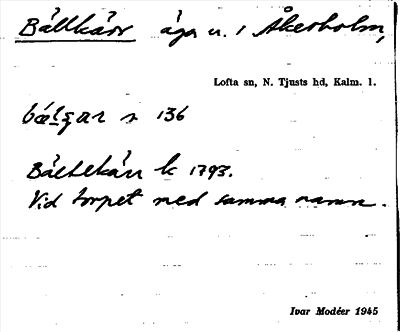 Bällkärr äga u. 1 Åkerholm,
Lofta sn, N. Tjusts hd, Kalm. l.
s 136
Bältekärr k 1793.
Vid torpet med samma namn.
Ivar Modéer 1945